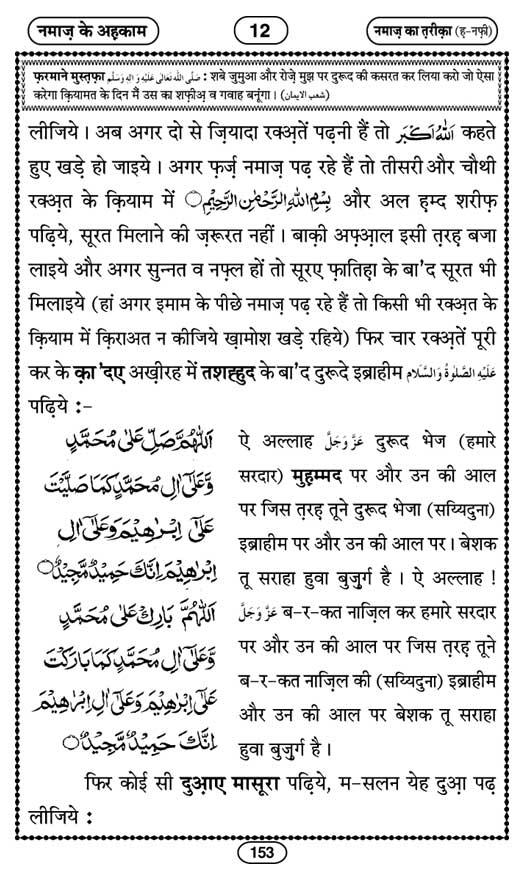 नमाज़ के अह़काम
12
नमाज़ का त़रीक़ा (ह़-नफ़ी)
फ़रमाने मुस्त़फ़ा صَلَّى اللّٰهُ تَعَالٰى عَلَيْهِ وَاٰلِهٖ وَسَلَّم : शबे जुमुआ और रोज़े मुझ पर दुरूद की कसरत कर लिया करो जो ऐसा
करेगा क़ियामत के दिन मैं उस का शफ़ीअ़ व गवाह बनूंगा। (شعب الایمان)
लीजिये। अब अगर दो से ज़ियादा रक्अ़तें पढ़नी हैं तो اَللّٰهُ اَكْبَر कहते
हुए खड़े हो जाइये। अगर फ़र्ज़ नमाज़ पढ़ रहे हैं तो तीसरी और चौथी
रक्अ़त के क़ियाम में بِسْمِ اللّٰهِ الرَّحْمٰنِ الرَّحِيْمِ और अल ह़म्द शरीफ़
पढ़िये, सूरत मिलाने की ज़रूरत नहीं। बाक़ी अफ़्आ़ल इसी त़रह़ बजा
लाइये और अगर सुन्नत व नफ़्ल हों तो सूरए फ़ातिह़ा के बा'द सूरत भी
मिलाइये (हां अगर इमाम के पीछे नमाज़ पढ़ रहे हैं तो किसी भी रक्अ़त के
क़ियाम में क़िराअत न कीजिये ख़ामोश खड़े रहिये) फिर चार रक्अ़तें पूरी
कर के क़ा'दए अख़ीरह में तशह्हुद के बा'द दुरूदे इब्राहीम عَلَيْهِ الصَّلٰوةُ وَالسَّلَام
पढ़िये :-
اَللّٰهُمَّ صَلِّ عَلٰى مُحَمَّدٍ
وَّعَلٰى اٰلِ مُحَمَّدٍ كَمَا صَلَّيْتَ
عَلٰى اِبْرٰهِيْمَ وَعَلٰى اٰلِ
اِبْرٰهِيْمَ اِنَّكَ حَمِيْدٌ مَّجِيْدٌ
اَللّٰهُمَّ بَارِكْ عَلٰى مُحَمَّدٍ
وَّعَلٰى اٰلِ مُحَمَّدٍ كَمَا بَارَكْتَ
عَلٰى اِبْرٰهِيْمَ وَعَلٰى اٰلِ اِبْرٰهِيْمَ
اِنَّكَ حَمِيْدٌ مَّجِيْدٌ
ऐ अल्लाह عَزَّ وَجَلَّ दुरूद भेज (हमारे
सरदार) मुह़म्मद पर और उन की आल
पर जिस त़रह़ तूने दुरूद भेजा (सय्यिदुना)
इब्राहीम पर और उन की आल पर। बेशक
तू सराहा हुवा बुज़ुर्ग है। ऐ अल्लाह !
عَزَّ وَجَلَّ ब-र-कत नाज़िल कर हमारे सरदार
पर और उन की आल पर जिस त़रह़ तूने
ब-र-कत नाज़िल की (सय्यिदुना) इब्राहीम
और उन की आल पर बेशक तू सराहा
हुवा बुज़ुर्ग है।
फिर कोई सी दुआ़ए मासूरा पढ़िये, म-सलन येह दुआ़ पढ़
लीजिये :
153